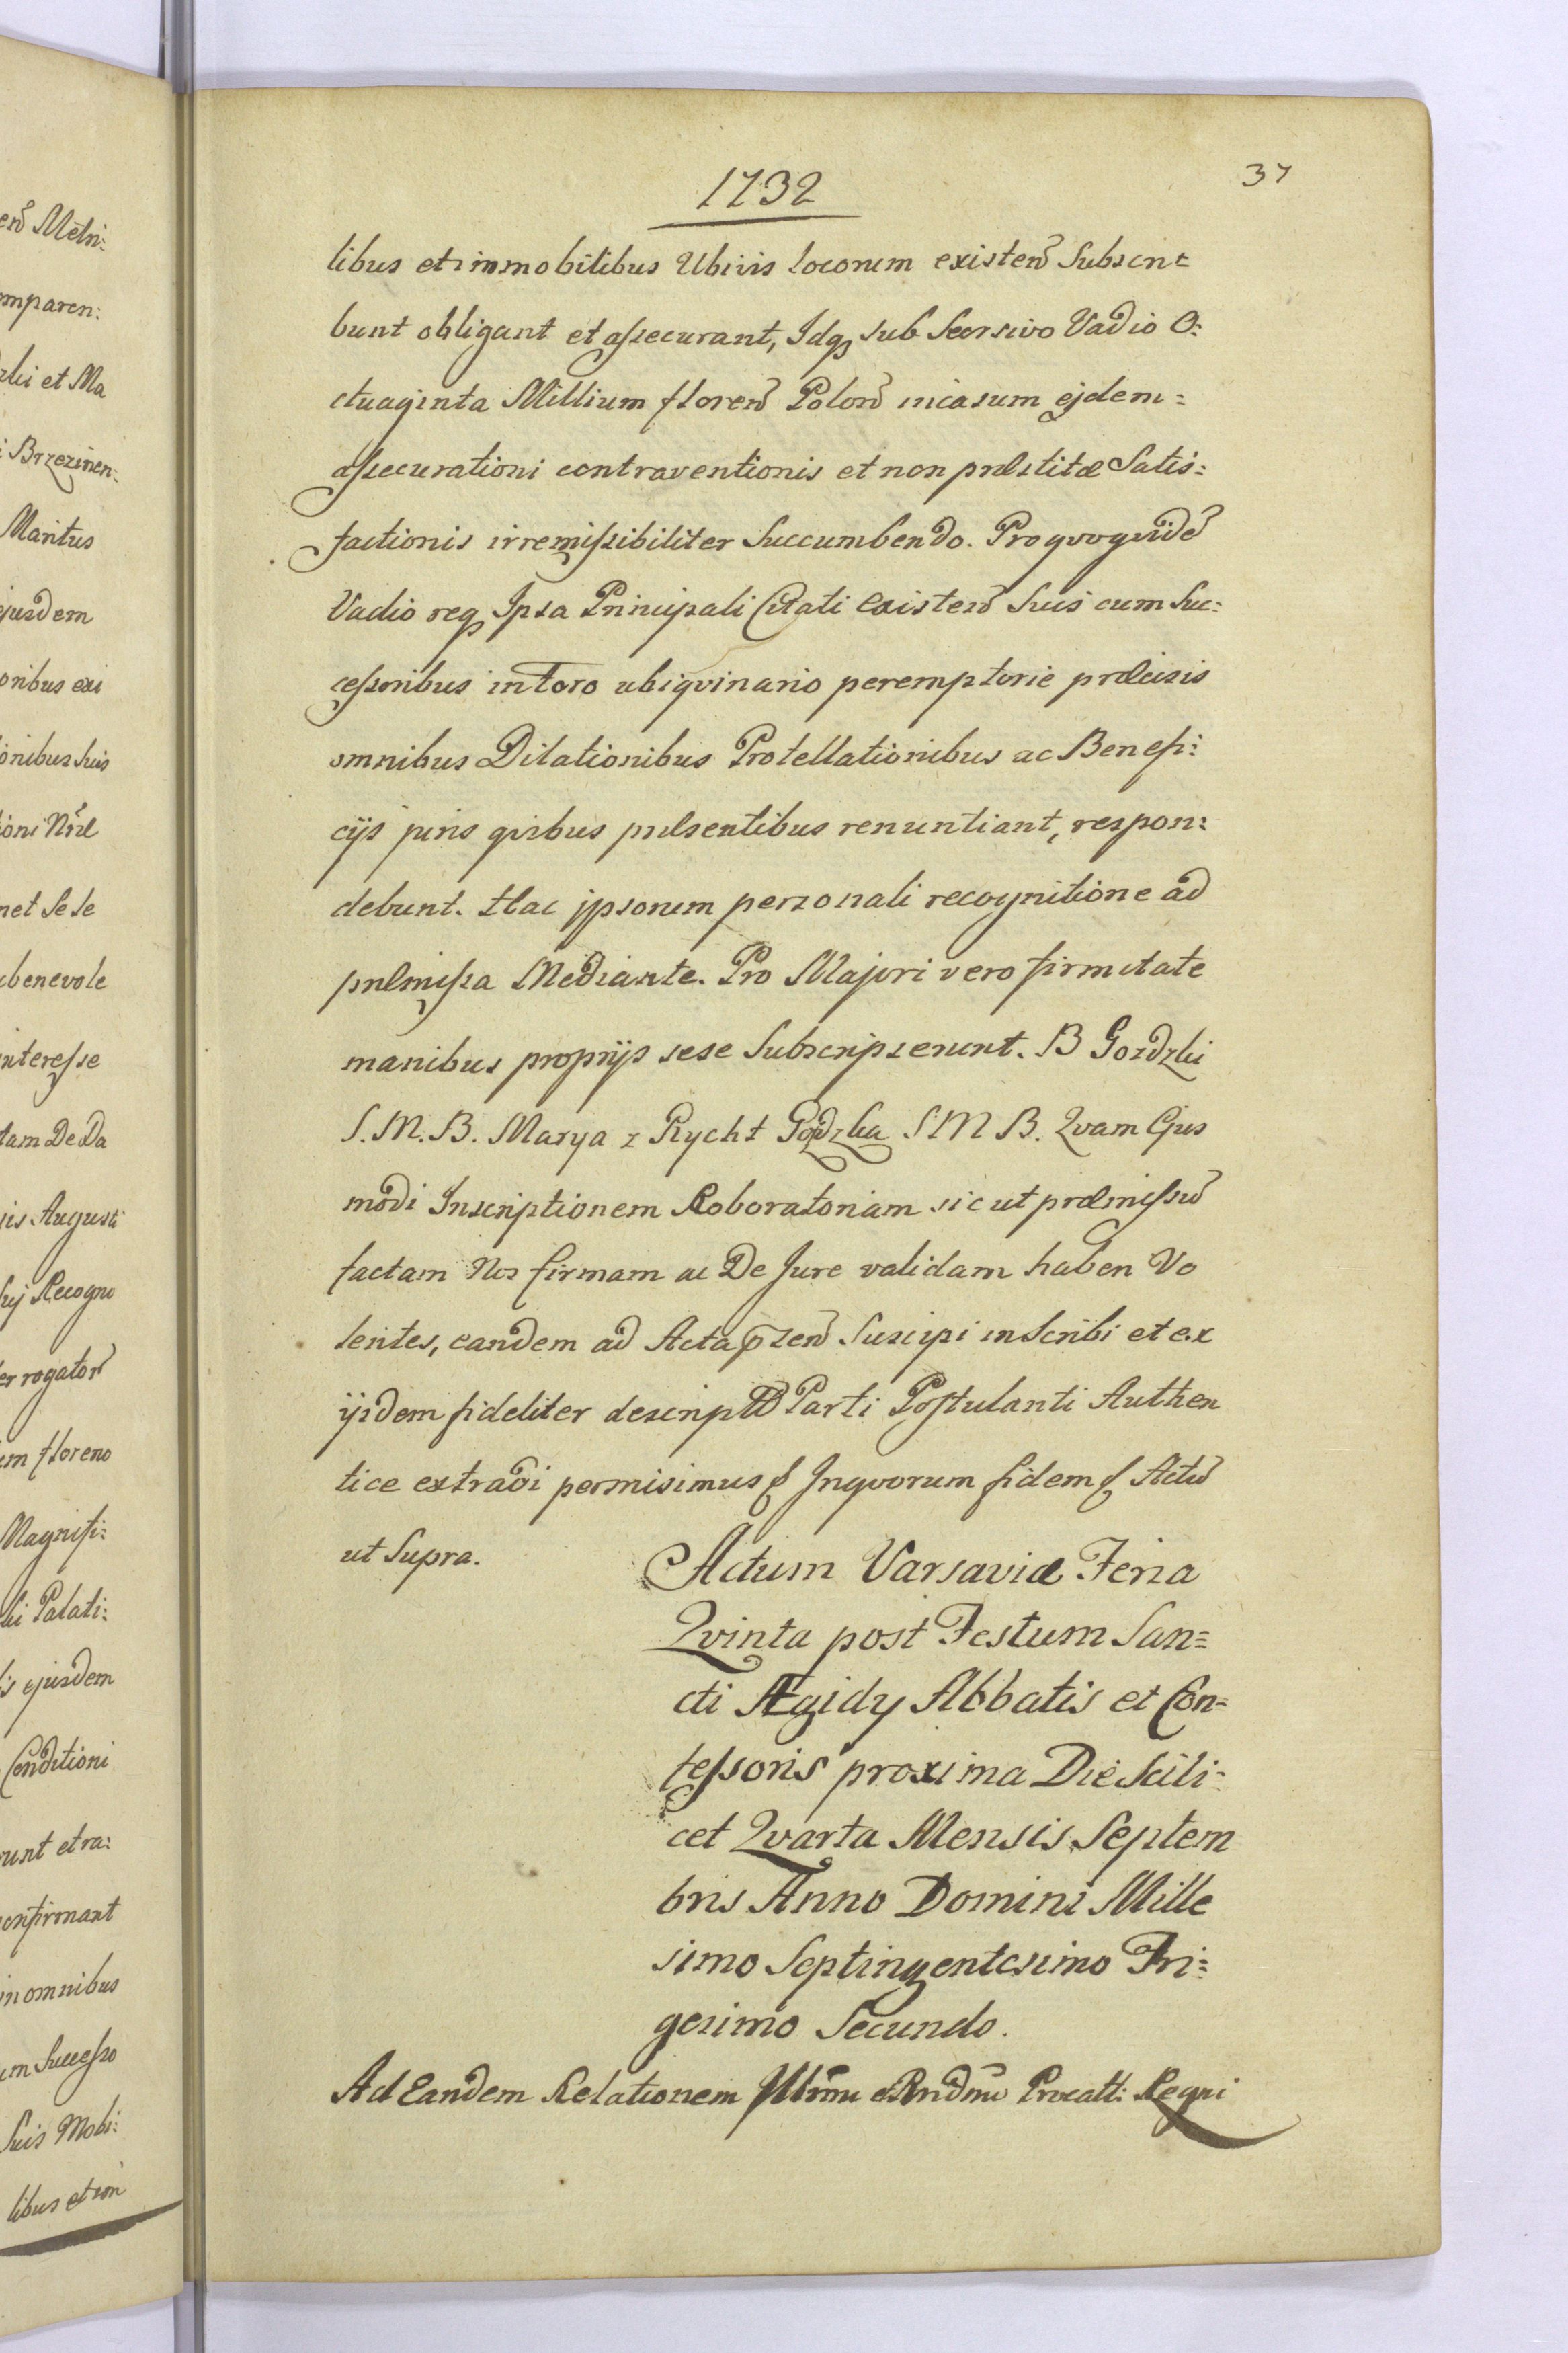 1732
37
libus et immobilibus Ubivis locorum existen Subscri=
bunt obligant et assecurant, Idq sub Seorsivo Vadio O:
ctuaginta Millium floren Polon in casum ejdem=
assecurationi contraventionis et non præstitæ Satis:
factionis irremissibiliter Succumbendo. Pro qvoqvide
Vadio req Ipsa Principali Citati Existen Suis cum Suc:
cessoribus in Foro ubiqvinario peremptorie præcisis
omnibus Dilationibus Protellationibus ac Benefi:
cijs juris qvibus præsentibus renuntiant, respon:
debunt. Hac ipsorum personali recognitione ad
præmissa Mediante. Pro Majori vero firmitate
manibus proprijs sese Subscripserunt. B Gozdzki
S.M.B. Marya z Rycht Gozdzka S M B. Qvam Ejus
modi Inscriptionem Roboratoriam sic ut præmissu
factam Nos firmam ac De Jure validam haberi Vo
lentes, eandem ad Acta pzen Suscipi inscribi et ex
ijsdem fideliter descript Parti Postulanti Authen
tice extradi permisimus Inqvorum fidem Actu
ut Supra.
Actum Varsaviæ Feria
Qvinta post Festum San=
cti Ægidy Abbatis et Con=
fessoris proxima Die Scili:
cet Qvarta Mensis Septem
bris Anno Domini Mille
simo Septingentesimo Tri:
gesimo Secundo.
Ad Eandem Relationem Illrmi et Rndmi Procatt: Regni
en Melni:
mparen:
zki et Ma
i Brzezinen:
Maritus
ejusdem
onibus exi
ionibus Suis
ioni Nræ
net Sese
benevole
interesse
tam De Da
is Augusti
Recogno
er rogator
um floreno
Magnifi:
ki Palati:
is ejusdem
Conditioni
runt et ra:
onfirmant
in omnibus
um Successo
Suis Mobi:
libus et im